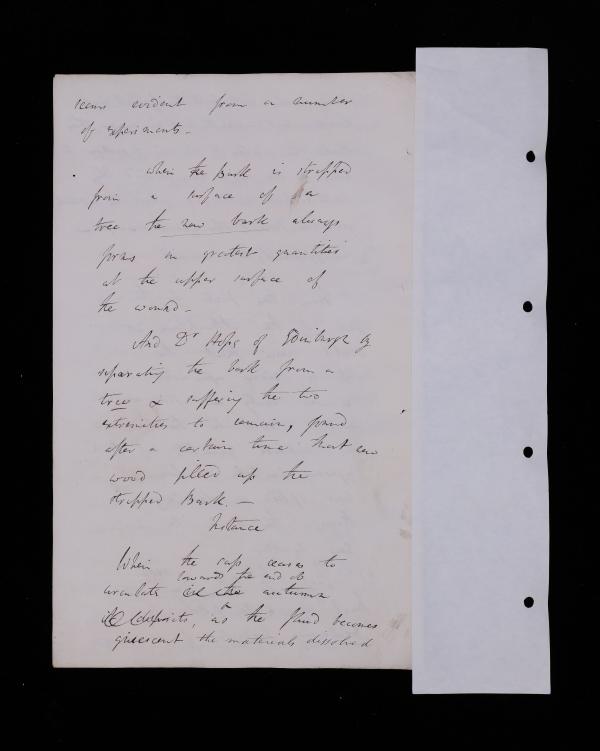 seems evident from a number
of experiments -
When the bark is stripped
from a surface of a
tree the new bark always
forms in greatest quantities
at the upper surface of
the wound -
And Dr Hope of Edinburgh by
separating the bark from a
tree & suffering the two
extremities to remain, found
after a certain time that new
wood filled up the
stripped Bark. -
Instance
When the sap ceases to
towards the end of
circulate autumn
deposits, as the fluid becomes
quiescent the materials dissolved